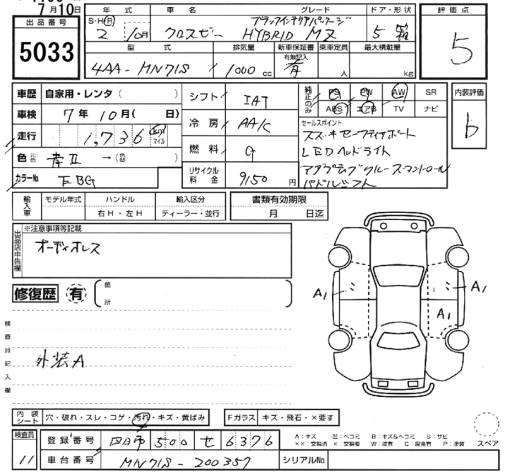 月10日
出品番号 年式 車名 グレード ドア・形状 評価点
5033
S・H・R 2 10月 クロスビー HYBRID MZ 5 5
型式 排気量 新車保証書 乗車定員 最大積載量
有無記入
4AA-MN71S 1000 cc 有 人 kg
車歴 自家用・レンタ( ) シフト IAT PS PW AW SR 内装評価
車検 7年10月( 日) ABS エアB TV ナビ b
冷房 AAC セールスポイント
走行 1,736 スズキセーフティサポート
燃料 G LEDヘッドライト
色 アダプティブクルーズコントロール
カラーNo リサイクル料金 9150円 パドルシフト
輸入車 モデル年式 ハンドル 輸入区分 書類有効期限
右H・左H ディーラー・並行 月 日迄
※注意事項等記載
出品店申告欄
オーディオレス
修復歴 有 箇所
A1 A1
検査員記入欄
外装A
内装シート 穴・破れ・スレ・コゲ・汚れ・キズ・黄ばみ Fガラス キズ・飛石・×要す
検査員 登録番号 500 せ 6376
11 車台番号 MN71S-200357 シリアルNo
スペア